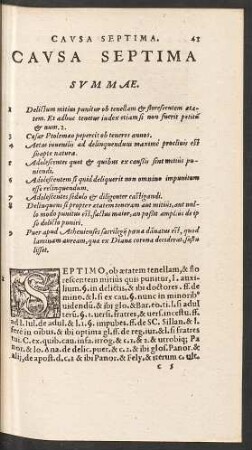 CAVSA SEPTIMA. 43
CAVSA SEPTIMA
SVMMAE.
1 Delictum mitius punitur ob tenellam & florescentem æta-
tem. Et adhuc tenetur iudex etiam si non fuerit petitū
& num. 2.
3 Cæsar Ptolemæo pepercit ob teneros annos.
4 Aetas iuuenilis ad delinquendum maximè procliuis est
suapte natura.
5 Adolescentes quot & quibus ex causis sint mitius pu-
niendi.
6 Adolescentem si quid deliquerit non omnino impunitum
esse relinquendum.
7 Adolescentes sedulò & diligenter castigandi.
8 Delinquens si propter ætatem teneram aut mitius, aut vel-
lo modo punitus est, factus maior, an possit amplius de ip
so delicto puniri.
9 Puer apud Athenienses sacrilegij pœna damnatus est, quod
laminam auream, quæ ex Dianæ corona deciderat, sustu
lisset.
SEPTIMO, ob ætatem tenellam, & flo
rescentem mitiùs quis punitur, l. auxi-
lium. §. in delictis. & ibi doctores. ff. de
mino. & l. si ex cau
uidendū. & ibi glo.
teru. §. 1. versi.
ad l. Iul. de adul. & l. 1. §. impubes. ff. de SC. Sillan. & l.
ferè in oibus. & ibi optima gl. ff. de reg. iur. & l. si fratres
tui. C. ex. quib. cau. infa. irrog. & c. 1. & 2. vtrobiq; Pa
nor. & Io. Ana. de delic. puer. & c. 1. & ibi glos. Panor. &
alij, de apost. d. c. 1. & ibi Panor. & Fely. & iterum c. vlt.
C 5